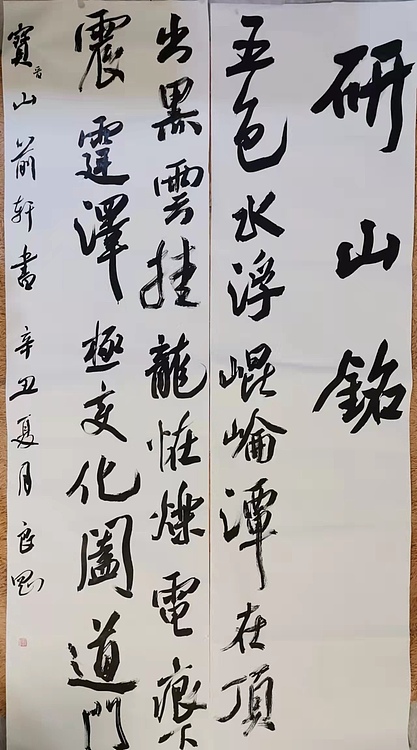 研山銘
五色水浮崐崘潭在頂
出黑雲挂龍怪爍電痕下
震霆澤極变化闔道門
寶晋山前轩書 辛丑夏月 良剛